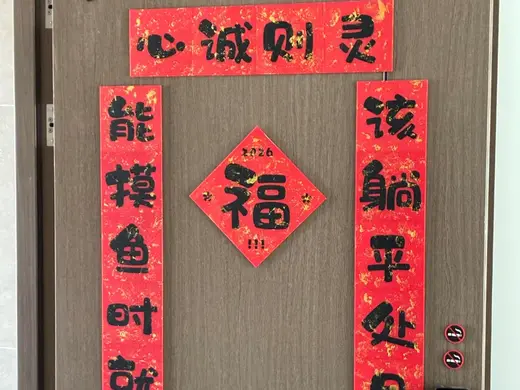 心诚则灵
能摸鱼时就
2026
福
!!!
该躺平处